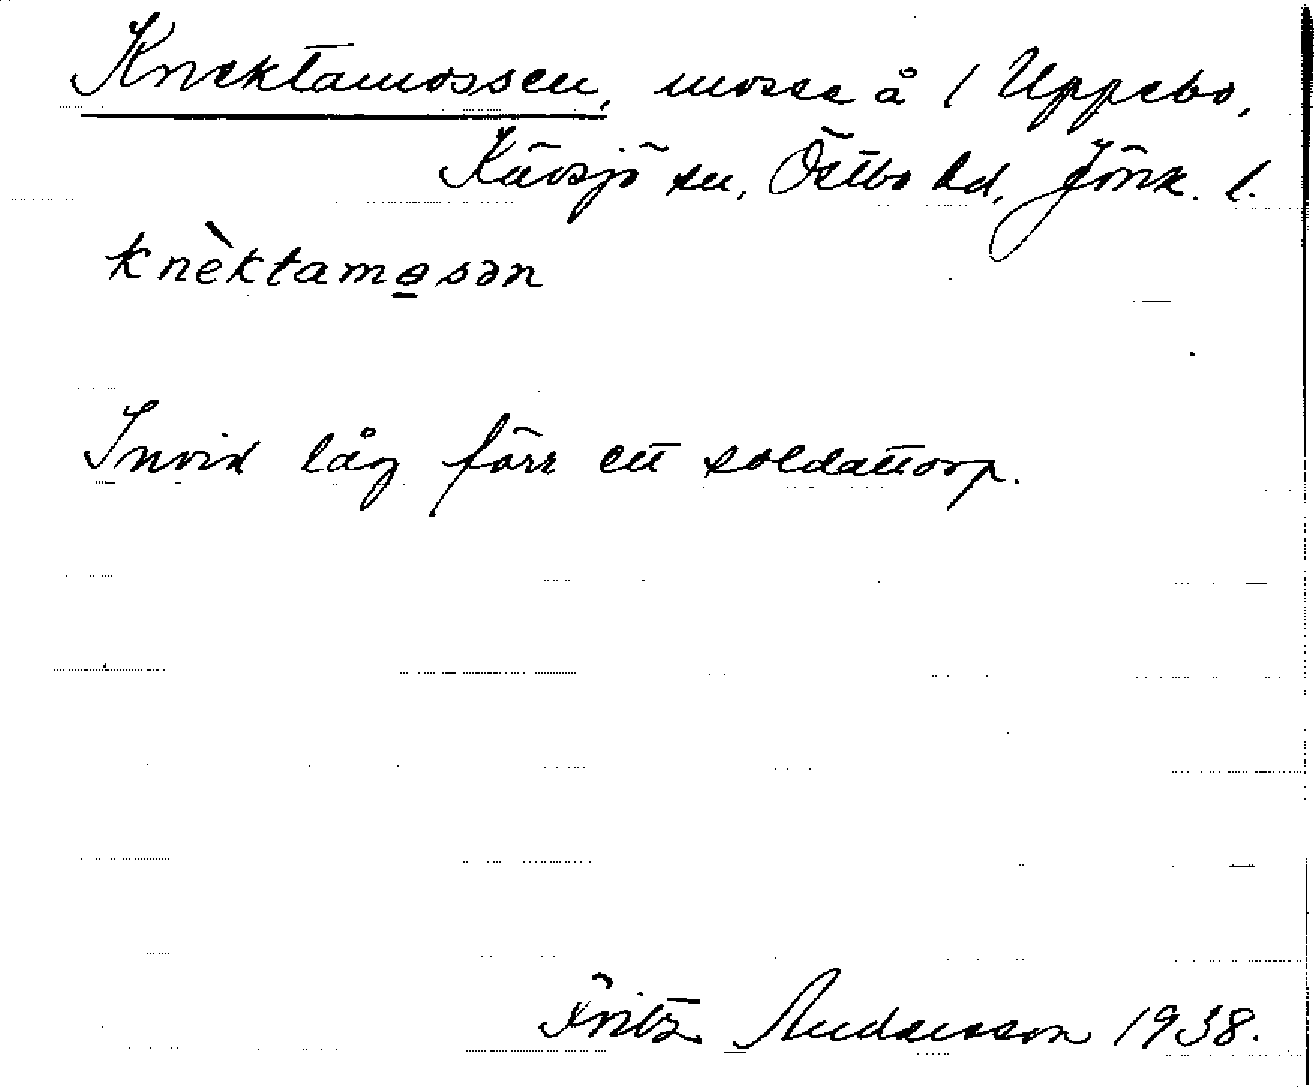 Knektamossen, mosse å 1 Uppebo,
Kävsjö sn, Östbo hd, Jönk. l.
knèktamo̲sən
Invid låg förr ett soldattorp.
Fritz Andersson 1938.